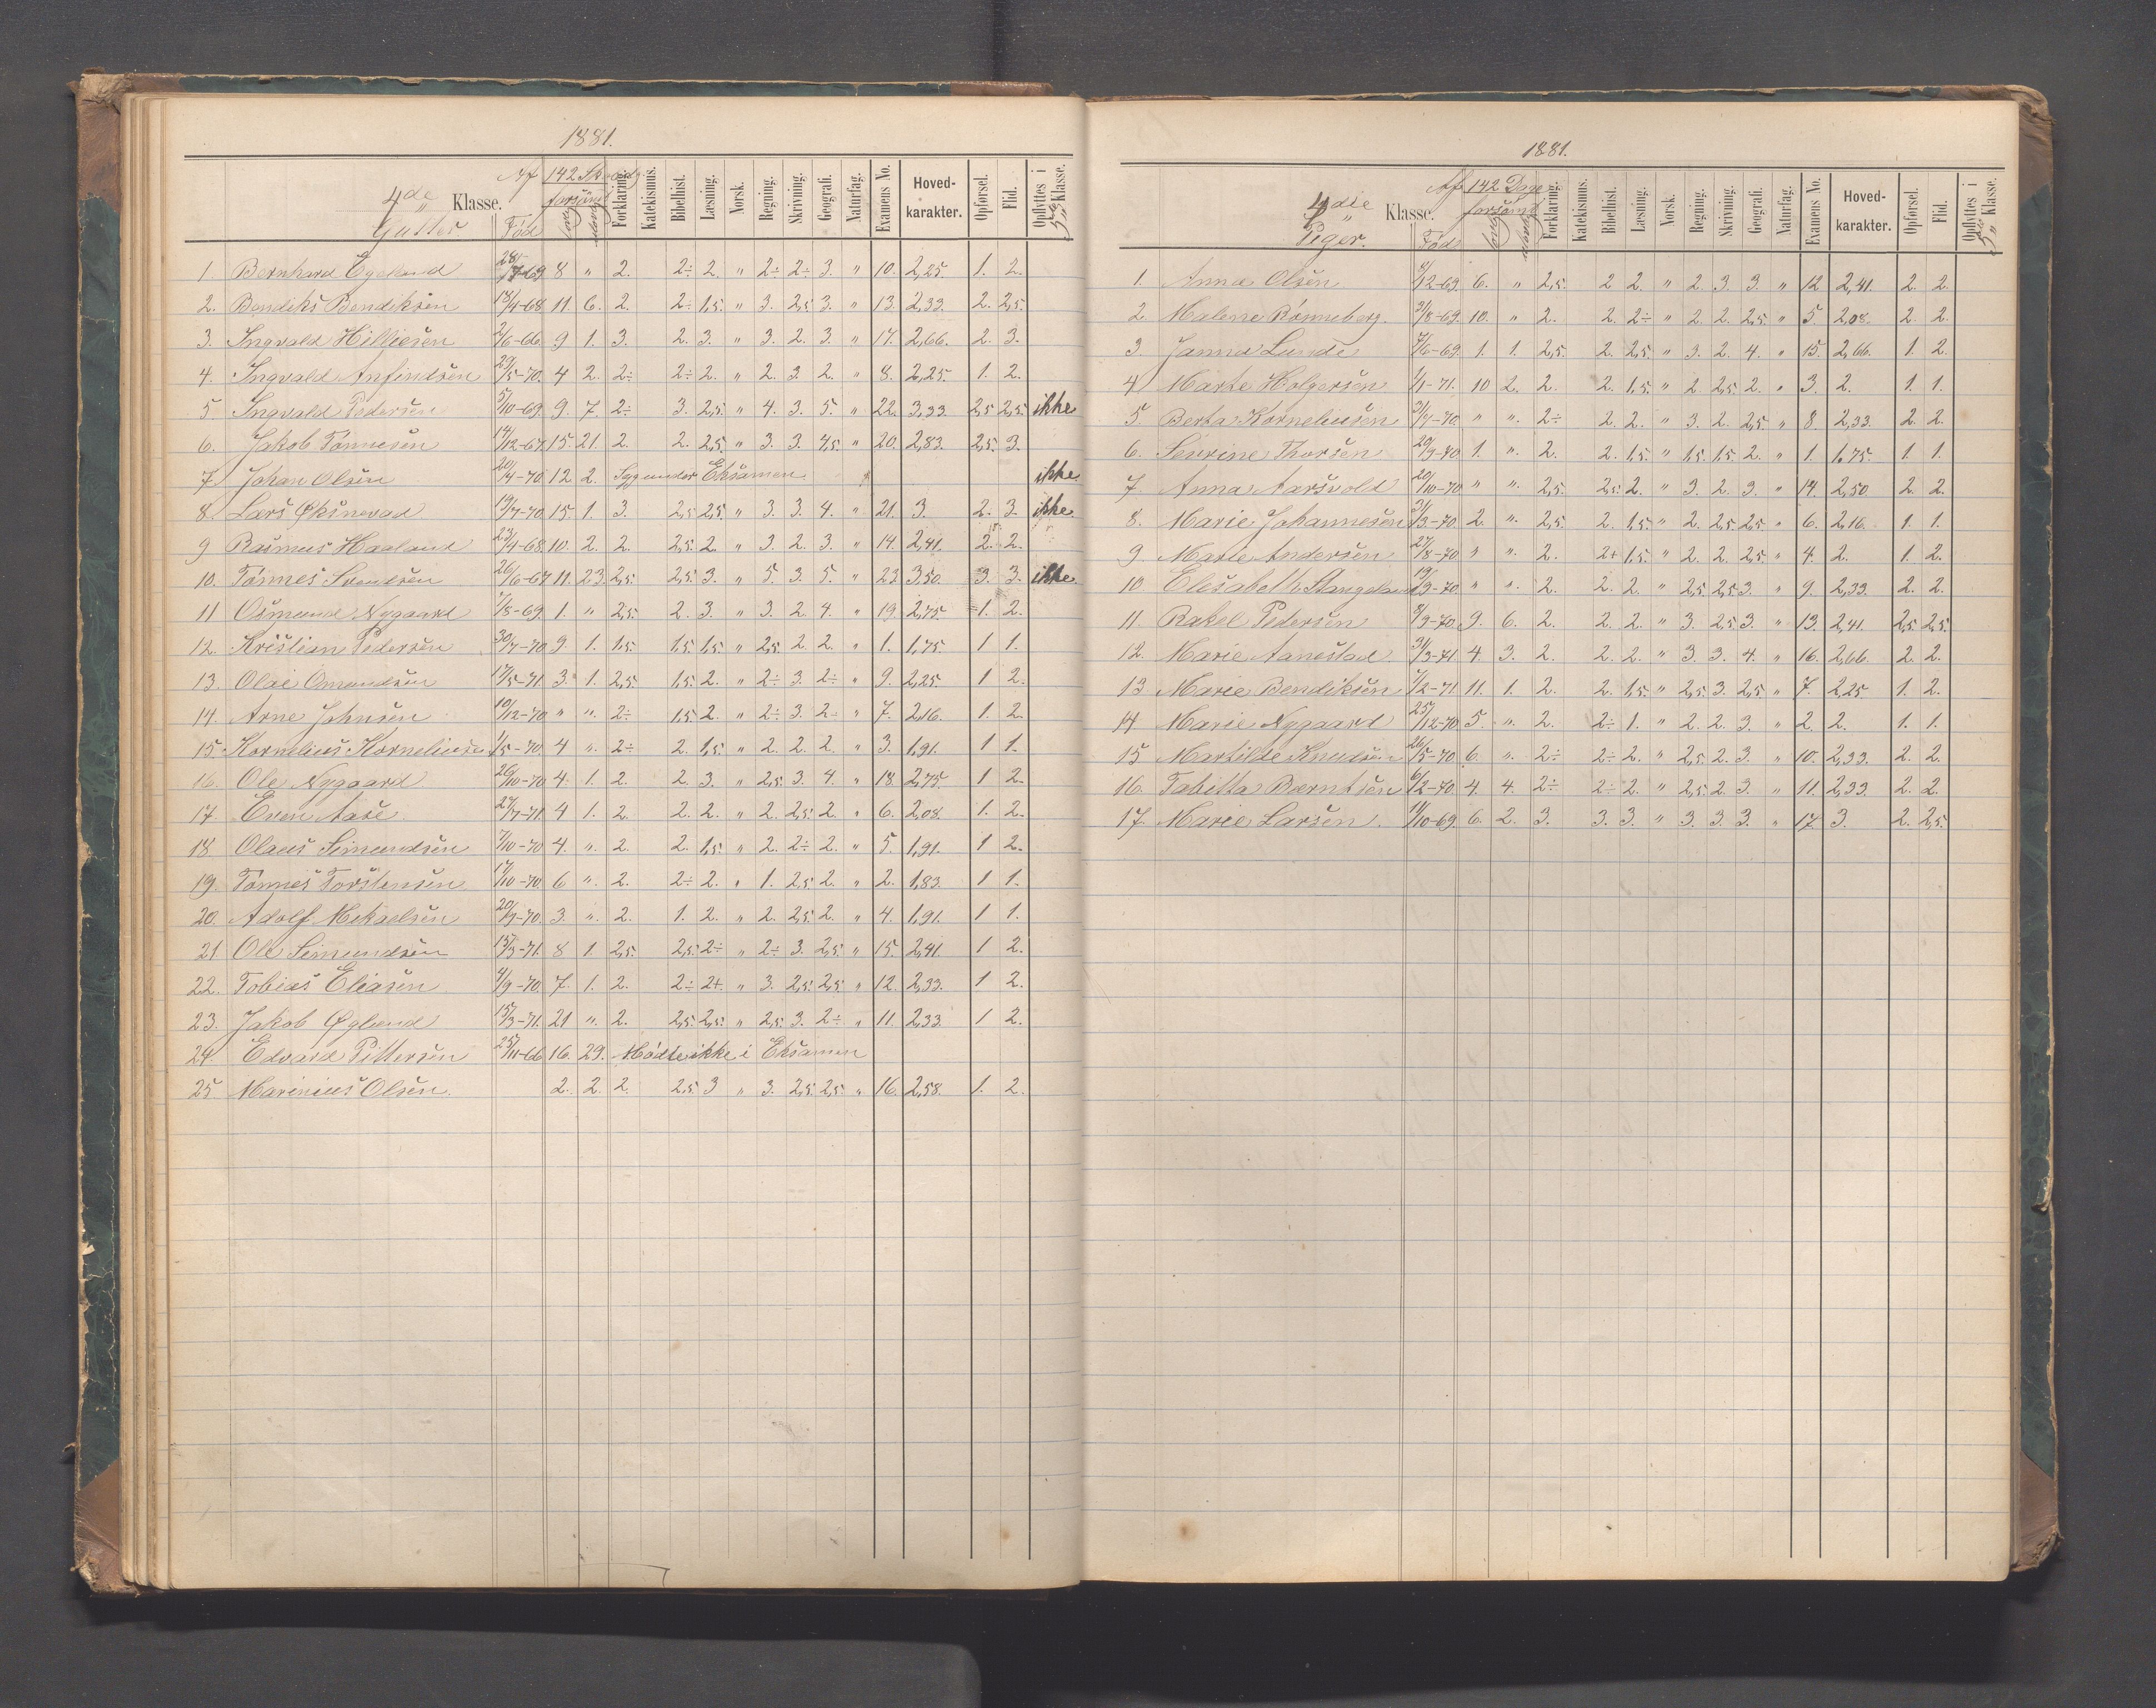 1881.
4de „ Klasse. Gutter. Af 142 forsømt Fød Forklaring. Katekismus. Bibelhist. Læsning. Norsk. Regning. Skrivning. Geografi. Naturfag. Examens No. Hoved-karakter. Opførsel. Flid. Opflyttes i 5te Klasse.
1. Bernhard Egeland 28/7-69 8 „ 2. 2÷ 2. „ 2÷ 2÷ 3. „ 10. 2,25. 1. 2.
2. Bendiks Bendiksen 14/4-68 11. 6. 2. 2÷ 1,5. „ 3. 2,5 3. „ 13. 2,33. 2. 2,5.
3. Ingvald Hilliesen 2/6-66 9 1. 3. 2. 3. „ 3. 2. 3. „ 17. 2,66. 2. 3.
4. Ingvald Anfindsen 29/5-70. 4 2. 2÷ 2÷ 2. „ 2. 3. 2. „ 8. 2,25. 1. 2.
5. Ingvald Pedersen 5/10-69. 9. 7. 2÷ 3. 2,5. „ 4. 3. 5. „ 22. 3,33. 2,5 2,5. ikke
6. Jakob Tønnesen 14/12-67. 15. 21. 2. 2. 2,5. „ 3. 3. 4,5. „ 20. 2,83. 2,5. 3.
7. Johan Olsen 20/4-70 12. 2. Syg under Eksamen ikke
8. Lars Øksnevad 19/7-70. 15. 1. 3. 2,5 2,5. „ 3. 3. 4. „ 21. 3. 2. 3. ikke.
9 Rasmus Haaland 23/4-68 10. 2. 2. 2,5. 2. „ 3. 2. 3. „ 14. 2,41. 2. 2.
10. Tønnes Svendsen 26/6-67 11. 23. 2,5. 2,5 3. „ 5. 3. 5. „ 23. 3,50. 3. 3. ikke.
11 Osmund Nygaard 1/8-69. 1. „ 2,5. 2. 3. „ 3. 2. 4. „ 19. 2,75. 1. 2.
12. Kristian Pedersen 30/7-70 9. 1. 1,5. 1,5. 1,5. „ 2,5. 2. 2. „ 1. 1,75. 1 1.
13. Olai Omundsen 17/5-71. 3. 1. 2,5. 1,5. 2. „ 2÷ 3. 2÷ „ 9. 2,25. 1 2.
14. Arne Johnsen 10/12-70 „ „ 2÷ 1,5 2. „ 2÷ 3. 2÷ „ 7. 2,16. 1. 2.
15. Kornelius Korneliusen 1/5-70. 4 „ 2÷ 2. 1,5. „ 2. 2. 2. „ 3. 1,91. 1 1.
16. Ole Nygaard 26/10-70 4. 1. 2. 2. 3. „ 2,5. 3. 4. „ 18. 2,75. 1 2.
17. Even Aase 27/7-71. 4 1. 2. 2. 2. „ 2. 2,5. 2. „ 6. 2,08. 1. 2.
18 Olaus Simundsen 7/10-70 4. „ 2. 2. 1,5. „ 2. 2÷ 2. „ 5. 1,91. 1 2.
19. Tønnes Torstensen 17/10-70. 6 „ 2. 2÷ 2. „ 1. 2,5 2. „ 2. 1,83. 1 1.
20. Adolf Mikaelsen 20/7-70. 3. „ 2. 1. 2. „ 2. 2,5. 2. „ 4. 1,91. 1 1.
21. Ole Simundsen 15/3-71. 8 1. 2,5. 2,5. 2÷ „ 2÷ 3. 2,5. „ 15. 2,41. 1 2.
22. Tobias Eliasen 4/9-70 7. 1. 2. 2÷ 2+. „ 3. 2,5. 2,5. „ 12. 2,33. 1 2.
23. Jakob Øglænd 15/3-71. 21 „ 2. 2,5. 2,5. „ 2,5. 3. 2÷ „ 11. 2,33. 1 2.
24. Edvard Pittersen 25/11-66 16. 29. Mødte ikke i Eksamen
25 Marinius Olsen. 2. 2. 2. 2,5. 3 „ 3. 2,5. 2,5. „ 16. 2,58. 1. 2.
1881.
4die „ Klasse. Piger. Af 142 Dage forsømt Fød Forklaring. Katekismus. Bibelhist. Læsning. Norsk. Regning. Skrivning. Geografi. Naturfag. Examens No. Hoved-karakter. Opførsel. Flid. Opflyttes i 5te Klasse.
1. Anna Olsen 8/12-69. 6. „ 2,5. 2 2. „ 2. 3. 3. „ 12 2,41. 2. 2.
2. Malene Rønneberg. 31/8-69. 10. „ 2. 2. 2÷ „ 2. 2. 2,5. „ 5. 2,08. 2. 2.
3. Janna Lunde 7/6-69. 1. 1. 2,5. 2. 2,5. „ 3. 2. 4. „ 15. 2,66. 1. 2.
4 Marte Holgersen 1/1-71. 10 2. 2. 2. 1,5. „ 2. 2,5 2. „ 3. 2. 1. 1.
5. Berta Korneliusen 31/7-70. „ „ 2÷ 2. 2. „ 3. 2. 2,5 „ 8. 2,33. 2. 2.
6. Severine Thorsen 29/9-70 1. „ 2. 2. 1,5. „ 1,5. 1,5. 2. „ 1. 1,75. 1 1.
7. Anna Aarsvold 20/10-70 „ „ 2,5. 2,5. 2. „ 3. 2. 3. „ 14. 2,50. 2. 2.
8. Marie Johannesen 31/3-70. 2. „ 2,5. 2. 1,5. „ 2. 2,5. 2,5. „ 6. 2,16. 1. 1.
9. Marie Andersen 27/8-70 „ „ 2. 2+ 1,5. „ 2. 2. 2,5. „ 4. 2. 1. 2.
10 Elesabeth Stangeland 13/9-70 „ „ 2. 2. 2. „ 2,5 2,5 3. „ 9. 2,33. 2. 2.
11. Rakel Pedersen 8/9-70. 9. 6. 2. 2. 2. „ 3. 2,5. 3. „ 13. 2,41. 2,5. 2,5.
12. Marie Aanestad 31/3-71 4. 3. 2. 2. 2. „ 3. 3. 4. „ 16. 2,66. 2. 2.
13 Marie Bendiksen 7/2-71. 11. 1. 2. 2. 1,5. „ 2,5. 3. 2,5. „ 7. 2,25 1. 2.
14. Marie Nygaard 25/12-70. 5. „ 2. 2÷ 1. „ 2. 2. 3. „ 2. 2. 1. 1.
15 Martilde Knudsen 26/5-70 6. „ 2÷ 2÷ 2. „ 2,5. 2. 3. „ 10. 2,33. 2. 2.
16. Tabitta Bærntsen 6/12-70. 4. 4. 2÷ 2÷ 2. „ 2,5. 2. 3. „ 11. 2,33. 2. 2.
17. Marie Larsen. 14/10-69. 6. 2. 3. 3. 3. „ 3. 3. 3. „ 17. 3. 2. 2,5.